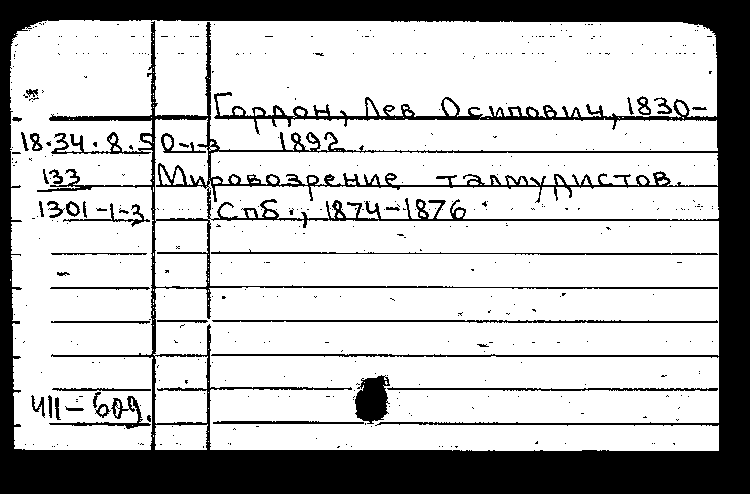 Гордон, Лев Осипович, 1830-
18.34.8.50-1-3 1892.
133 Мировозрение талмудистов.
1301-1-3 Спб., 1874-1876
ЧІІ-609.